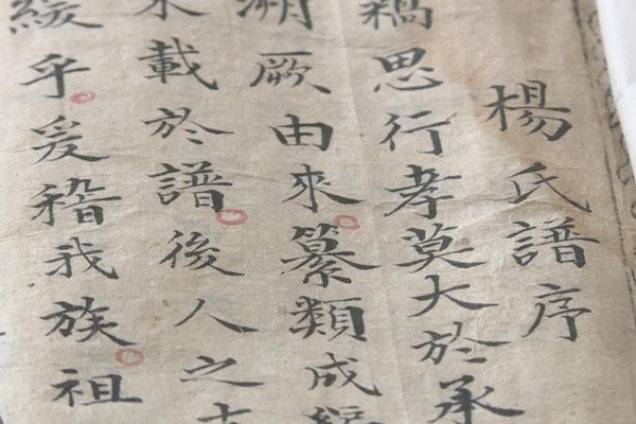 楊氏譜序
思行孝莫大於承
溯厥由來纂類成編
載於譜後人之
緩乎爰稽我族祖